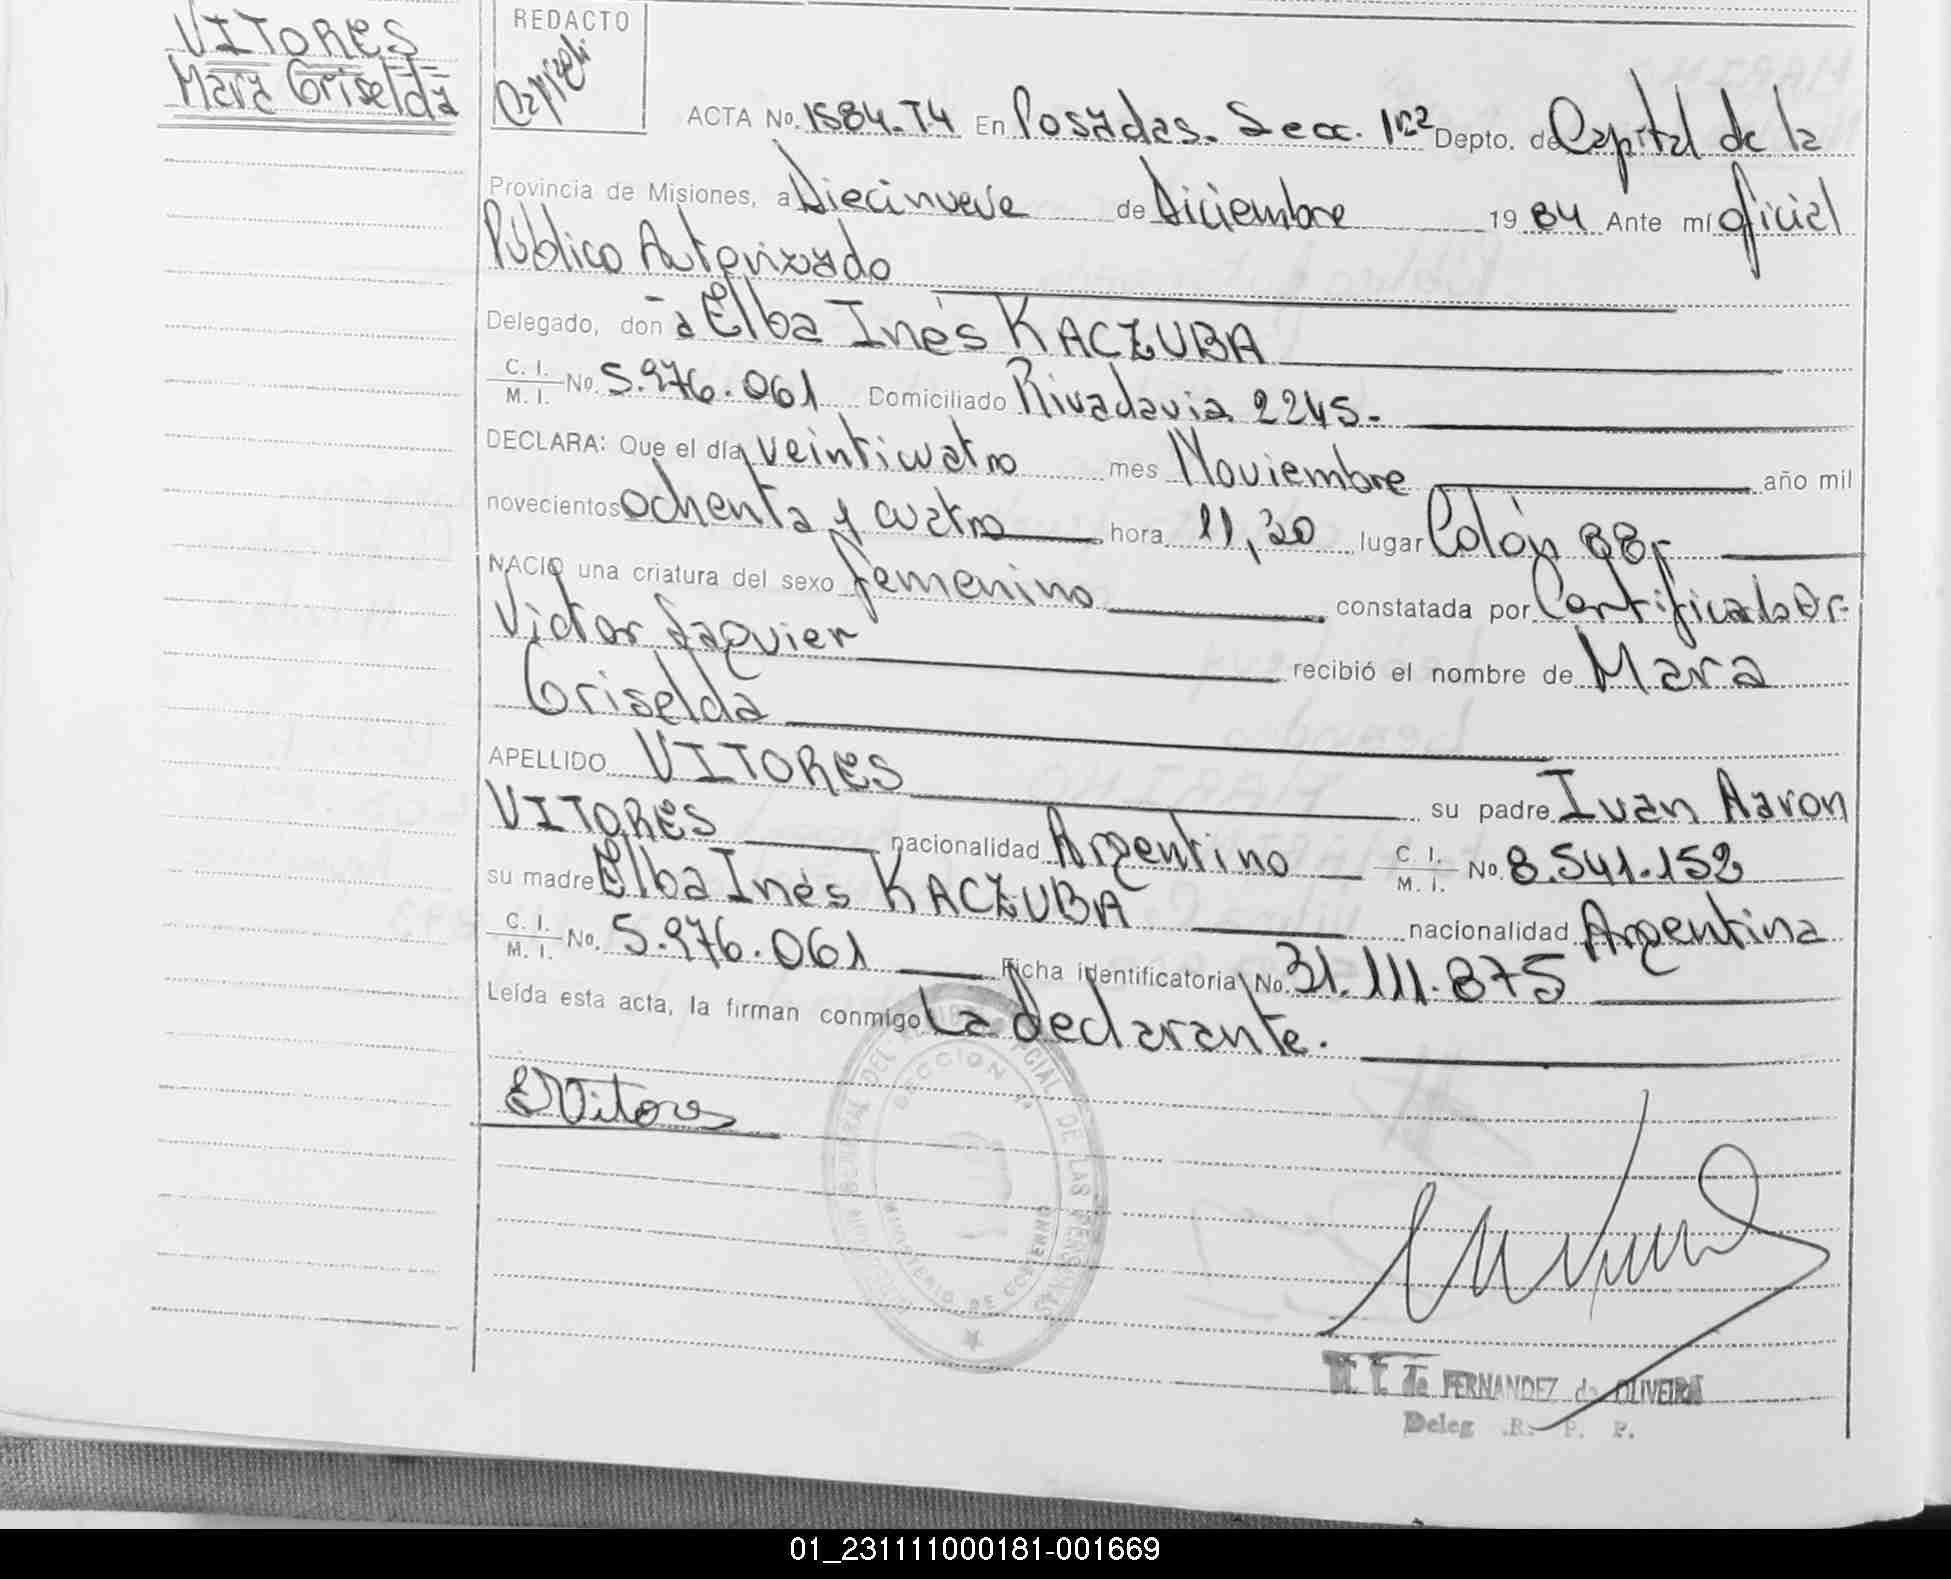 VITORES
Mara Griselda
REDACTO
ACTA No. 1584.T4 En Posadas. Secc. 1ra Depto. de Capital de la
Provincia de Misiones, a Diecinueve de Diciembre 1984 Ante mí Oficial
Público Autorizado
Delegado, don a Elba Inés KACZUBA
C. I.
M. I. No. 5.976.061 Domiciliado Rivadavia 2245.
DECLARA: Que el día veinticuatro mes Noviembre año mil
novecientos ochenta y cuatro hora 11,30 lugar Colón
NACIO una criatura del sexo femenino constatada por Certificado Dr.
Victor Jaquier recibió el nombre de Mara
Griselda
APELLIDO VITORES su padre Ivan Aaron
VITORES nacionalidad Argentino C. I. M. I. No. 8.541.152
su madre Elba Inés KACZUBA nacionalidad Argentina
C. I.
M. I. No. 5.976.061 Ficha identificatoria No. 31.111.875
Leída esta acta, la firman conmigo La declarante.
EVitores
SECCION 1ª
MINISTERIO DE GOBIERNO
FERNANDEZ de OLIVEIRA
Deleg .R. P. P.
01_231111000181-001669